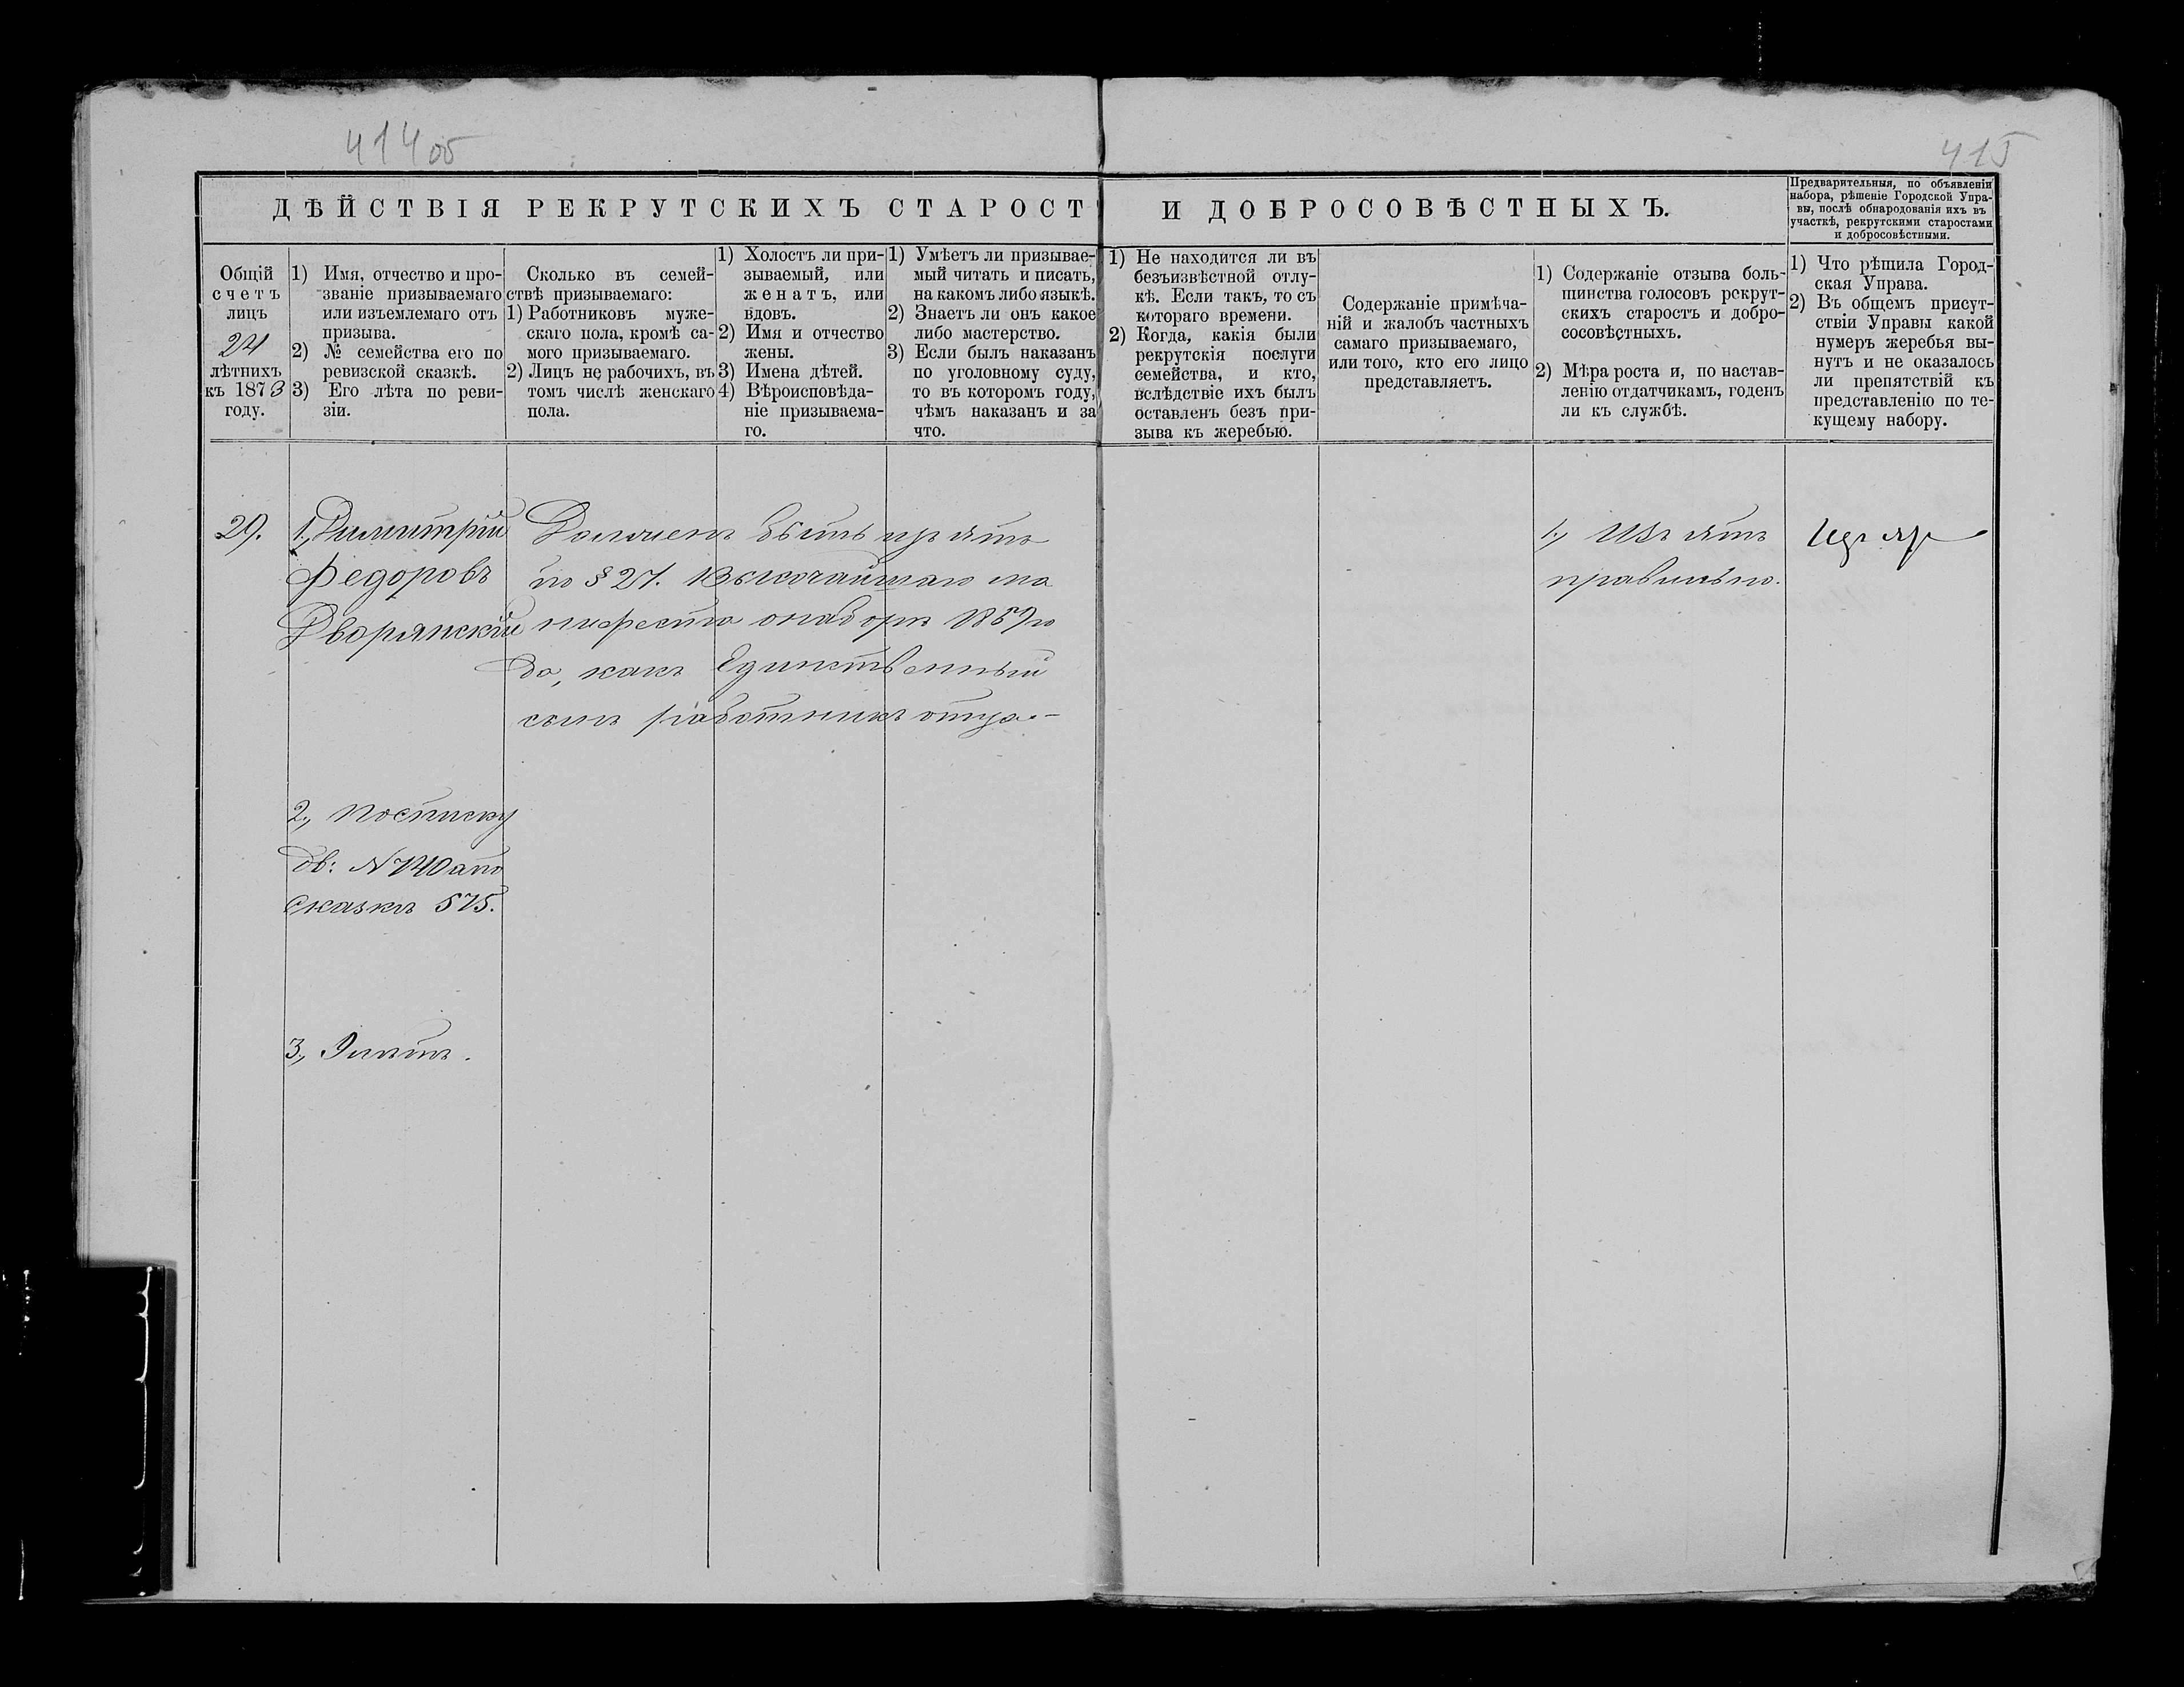 414об
415
ДѢЙСТВІЯ РЕКРУТСКИХЪ СТАРОСТ И ДОБРОСОВѢСТНЫХЪ.
Предварительныя, по объявленіи
набора, рѣшеніе Городской Упра-
вы, послѣ обнародованія ихъ въ
участкѣ, рекрутскими старостами
и добросовѣстными.
Общій
счетъ
лицъ
21
лѣтнихъ
къ 1873
году.
1) Имя, отчество и про-
званіе призываемаго
или изъемлемаго отъ
призыва.
2) № семейства его по
ревизской сказкѣ.
3) Его лѣта по реви-
зіи.
Сколько въ семей-
ствѣ призываемаго:
1) Работниковъ муже-
скаго пола, кромѣ са-
мого призываемаго.
2) Лицъ не рабочихъ, въ
томъ числѣ женскаго
пола.
1) Холостъ ли при-
зываемый, или
женатъ, или
вдовъ.
2) Имя и отчество
жены.
3) Имена дѣтей.
4) Вѣроисповѣда-
ніе призываема-
го.
1) Умѣетъ ли призывае-
мый читать и писать,
на какомъ либо языкѣ.
2) Знаетъ ли онъ какое
либо мастерство.
3) Если былъ наказанъ
по уголовному суду,
то въ которомъ году,
чѣмъ наказанъ и за
что.
1) Не находится ли въ
безъизвѣстной отлу-
кѣ. Если такъ, то съ
котораго времени.
2) Когда, какія были
рекрутскія послуги
семейства, и кто,
вслѣдствіе ихъ былъ
оставленъ безъ при-
зыва къ жеребью.
Содержаніе примѣча-
ній и жалобъ частныхъ
самаго призываемаго,
или того, кто его лицо
представляетъ.
1) Содержаніе отзыва боль-
шинства голосовъ рекрут-
скихъ старостъ и добро-
совѣстныхъ.
2) Мѣра роста и, по настав-
ленію отдатчикамъ, годенъ
ли къ службѣ.
1) Что рѣшила Город-
ская Управа.
2) Въ общемъ присут-
ствіи Управы какой
нумеръ жеребья вы-
нутъ и не оказалось
ли препятствій къ
представленію по те-
кущему набору.
29.
1, Димитрій
Федоровъ
Дворянскій
Долженъ быть изъятъ
по § 27. Высочайшаго ма
нифеста о наборѣ 1869 го
да, какъ Единственный
сынъ работникъ отца.
1, Изъятъ
правильно.
2, По списку
дв: N 140 а по
сказкѣ 575.
3, 9 лѣтъ.